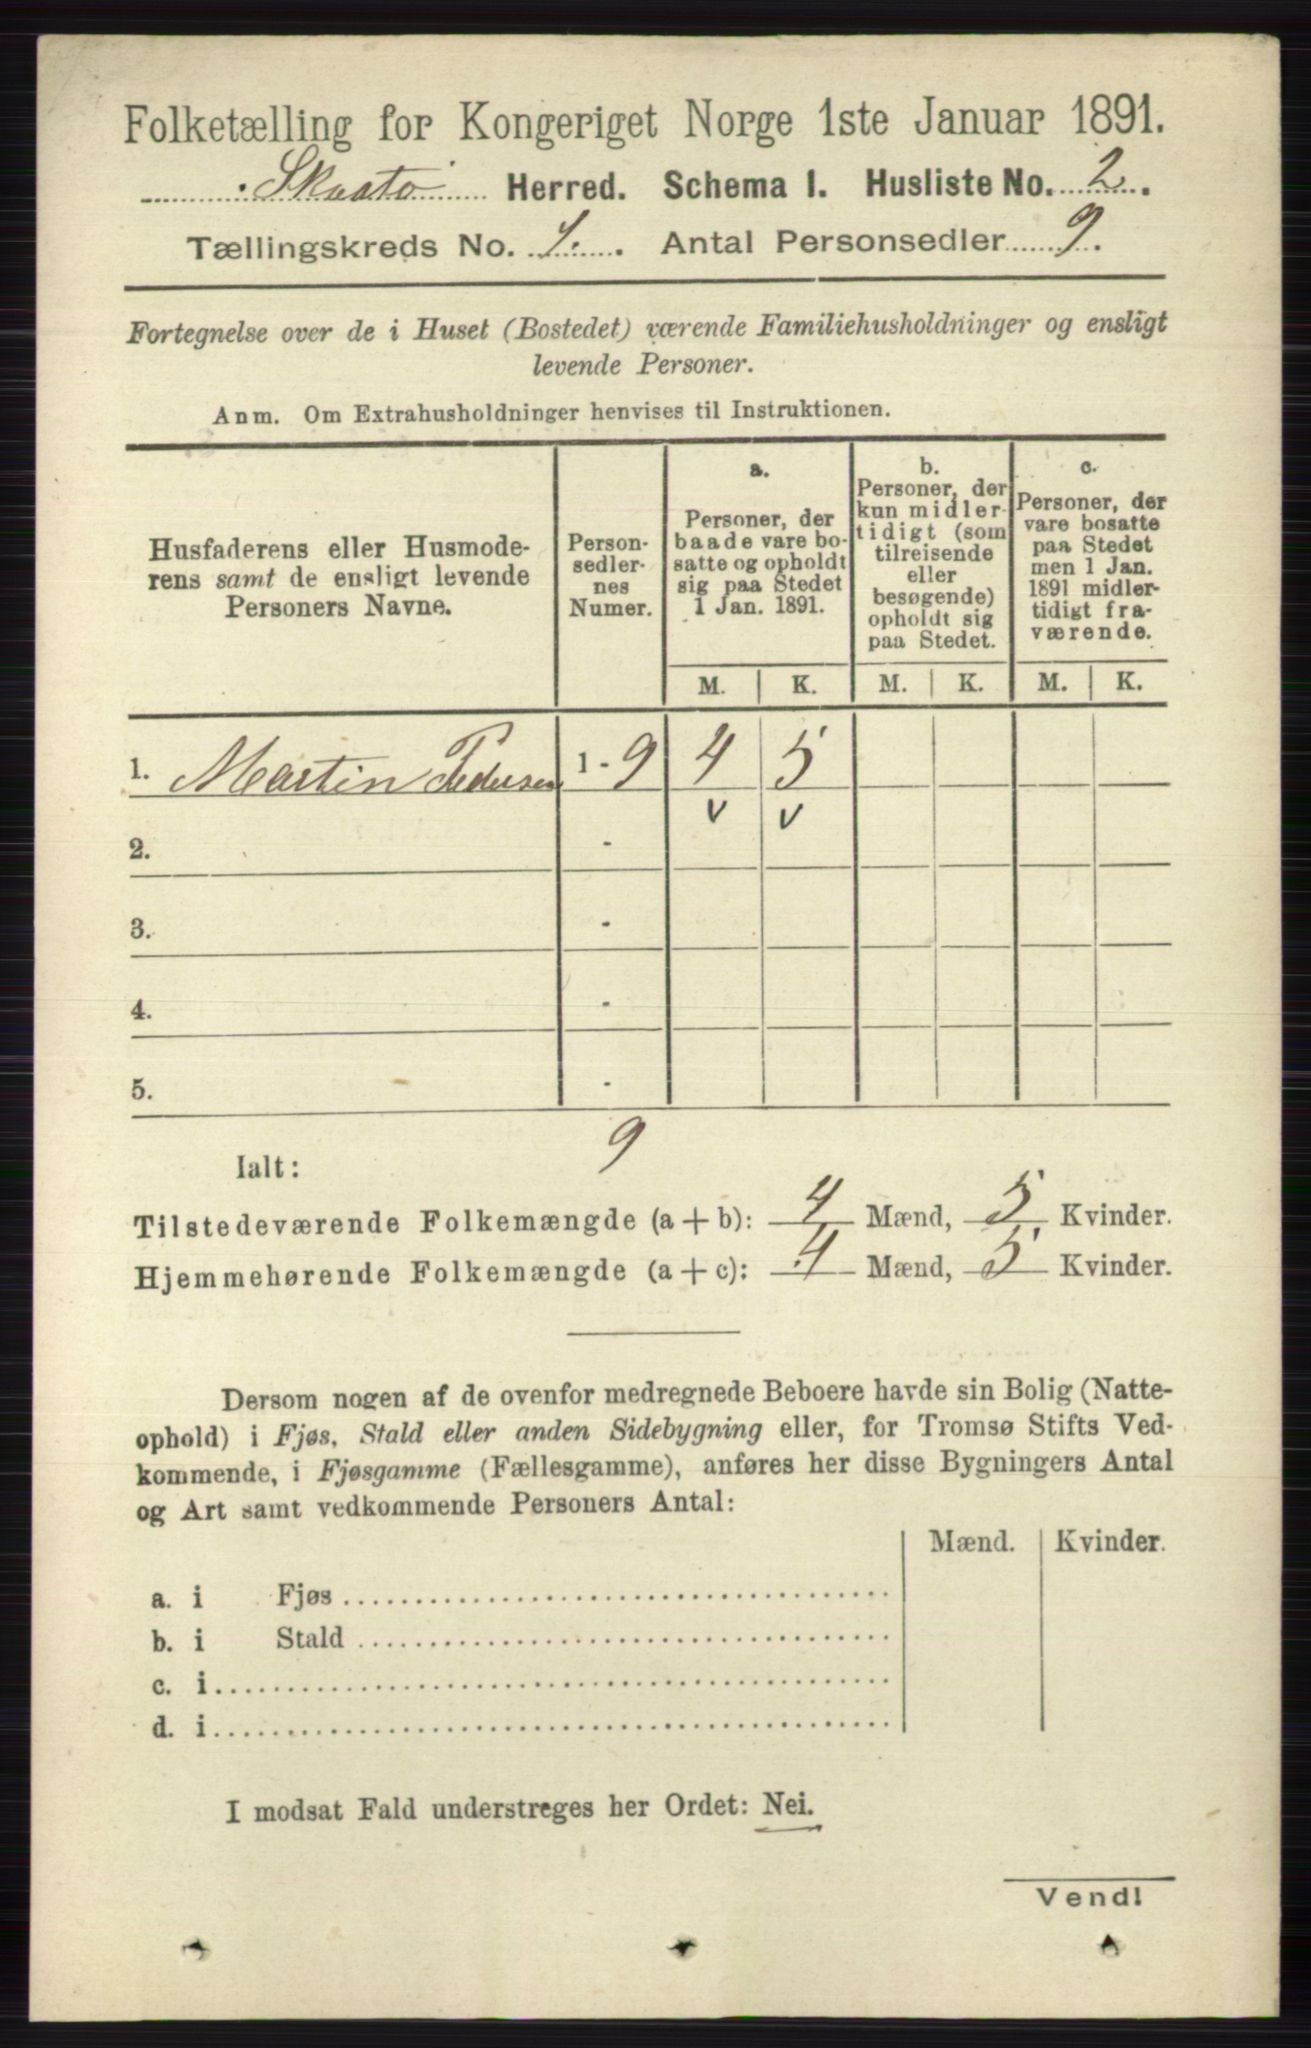 Folketælling for Kongeriget Norge 1ste Januar 1891.
Skaatø Herred. Schema 1. Husliste No. 2.
Tællingskreds No. 1. Antal Personsedler 9.
Fortegnelse over de i Huset (Bostedet) værende Familiehusholdninger og ensligt
levende Personer.
Anm. Om Extrahusholdninger henvises til Instruktionen.
Husfaderens eller Husmode-
rens samt de ensligt levende
Personers Navne.
Person-
sedler-
nes
Numer.
a.
Personer, der
baade vare bo-
satte og opholdt
sig paa Stedet
1 Jan. 1891.
b.
Personer, der
kun midler-
tidigt (som
tilreisende
eller
besøgende)
opholdt sig
paa Stedet.
c.
Personer, der
vare bosatte
paa Stedet
men 1 Jan.
1891 midler-
tidigt fra-
værende.
M. K. M. K. M. K.
1. Martin Pedersen 1 - 9 4 5
v v
2. -
3. -
4. -
5. -
9
Ialt:
Tilstedeværende Folkemængde (a + b): 4 Mænd, 5 Kvinder.
Hjemmehørende Folkemængde (a + c): 4 Mænd, 5 Kvinder.
Dersom nogen af de ovenfor medregnede Beboere havde sin Bolig (Natte-
ophold) i Fjøs, Stald eller anden Sidebygning eller, for Tromsø Stifts Ved-
kommende, i Fjøsgamme (Fællesgamme), anføres her disse Bygningers Antal
og Art samt vedkommende Personers Antal:
Mænd. Kvinder.
a. i Fjøs
b. i Stald
c. i
d. i
I modsat Fald understreges her Ordet: Nei.
Vend!